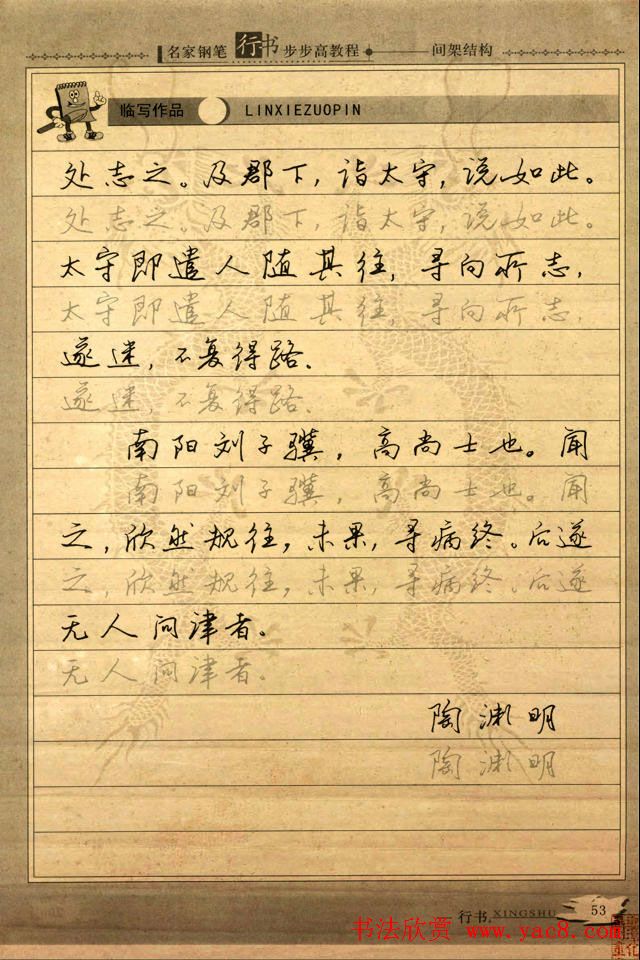 名家钢笔行书步步高教程 间架结构
临写作品 LINXIEZUOPIN
处志之。及郡下，诣太守，说如此。
处志之。及郡下，诣太守，说如此。
太守即遣人随其往，寻向所志，
太守即遣人随其往，寻向所志，
遂迷，不复得路。
遂迷，不复得路。
南阳刘子骥，高尚士也。闻
南阳刘子骥，高尚士也。闻
之，欣然规往，未果，寻病终。后遂
之，欣然规往，未果，寻病终。后遂
无人问津者。
无人问津者。
陶渊明
陶渊明
行书 XINGSHU 53
书法欣赏 www.yac8.com